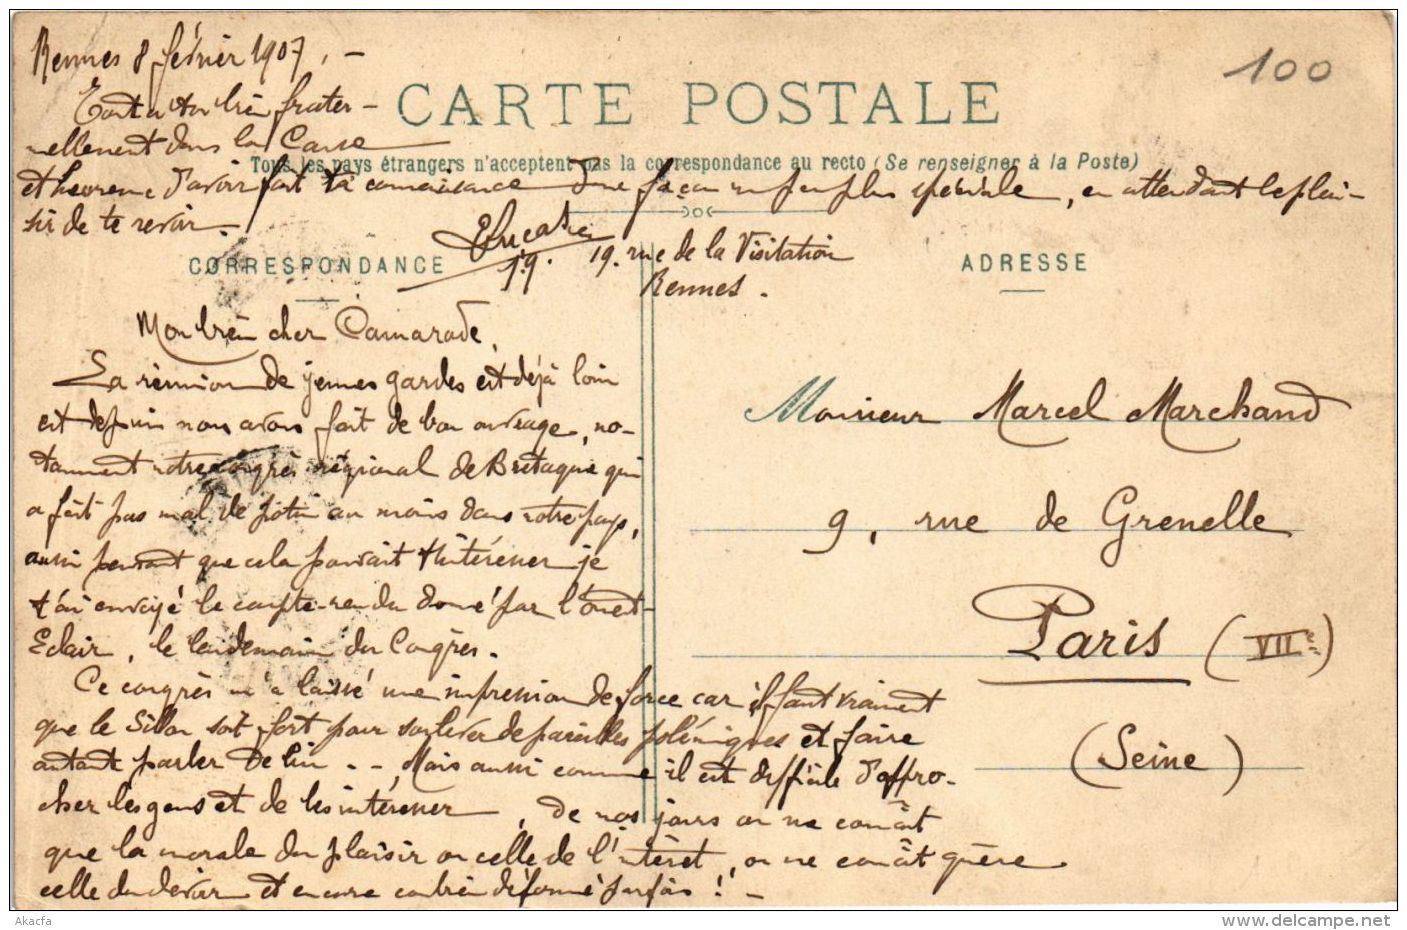 Rennes 8 février 1907. -
100
Tout à toi bien frater-
nellement dans la Cause
CARTE POSTALE
Tous les pays étrangers n'acceptent pas la correspondance au recto (Se renseigner à la Poste)
et heureux d'avoir fait ta connaissance d'une façon un peu plus spéciale, en attendant le plai-
sir de te revoir. -
19.
19. rue de la Visitation
Rennes.
CORRESPONDANCE
ADRESSE
Mon bien cher Camarade,
La réunion de jeunes gardes est déjà loin
et depuis nous avons fait de bon ouvrage, no-
tamment notre congrès régional de Bretagne qui
a fait pas mal de potin au moins dans notre pays,
aussi pensant que cela pouvait t'intéresser je
t'ai envoyé le compte-rendu donné par l'Ouest-
Eclair, le lendemain du Congrès.
Ce congrès m'a laissé une impression de force car il faut vraiment
que le Sillon soit fort pour soulever de pareilles polémiques et faire
autant parler de lui . - . Mais aussi comme il est difficile d'appro-
cher les gens et de les intéresser, de nos jours on ne connaît
que la morale du plaisir ou celle de l'intérêt, on ne connaît guère
celle du devoir et encore combien déformé parfois ! -
Monsieur Marcel Marchand
9, rue de Grenelle
Paris (VII)
(Seine)
Akacfa
delcampe.net